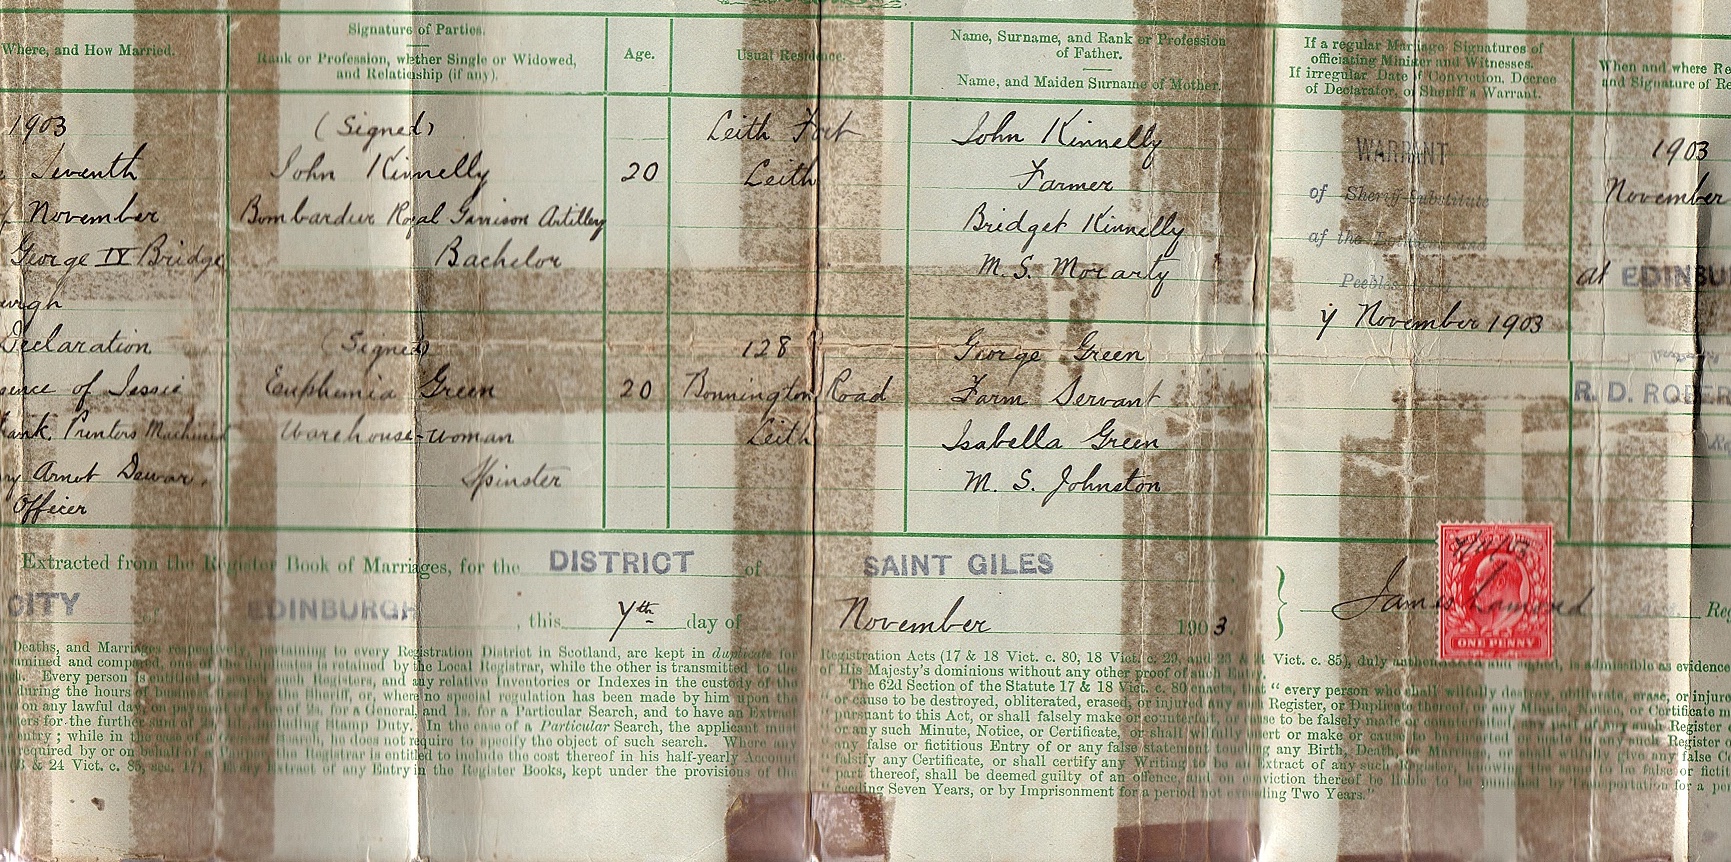 Where, and How Married.
Signature of Parties.
Rank or Profession, whether Single or Widowed,
and Relationship (if any).
Age.
Usual Residence.
Name, Surname, and Rank or Profession
of Father.
Name, and Maiden Surname of Mother.
If a regular Marriage, Signatures of
officiating Minister and Witnesses.
If irregular Date of Conviction, Decree
of Declarator, or Sheriff's Warrant.
When and where Re
and Signature of Re
1903
Seventh
November
George IV Bridge
urgh
Declaration
sence of Jessie
Printers Machinist
Arnot Dewar,
Officer
(Signed)
John Kinnelly
Bombardier Royal Garrison Artillery
Bachelor
20
Leith Fort
Leith
John Kinnelly
Farmer
Bridget Kinnelly
M. S. Morarty
WARRANT
of Sheriff-Substitute
of the Lothians and
Peebles
7 November 1903
1903
November
at EDINBU
R. D. ROBER
Signed
Euphemia Green
Warehouse-woman
Spinster
20
128
Bonnington Road
Leith
George Green
Farm Servant
Isabella Green
M. S. Johnston
Extracted from the Register Book of Marriages, for the DISTRICT of SAINT GILES
CITY of EDINBURGH, this 7th day of November 1903
James
ONE PENNY
Deaths, and Marriages respectively, pertaining to every Registration District in Scotland, are kept in duplicate for
amined and compared, one of the is retained by the Local Registrar, while the other is transmitted to the
Every person is entitled such Registers, and any relative Inventories or Indexes in the custody of the
during the hours of business the Sheriff, or, where no special regulation has been made by him upon the
on any lawful day, on payment of 2s. for a General, and 1s. for a Particular Search, and to have an Extract
ters for the further sum of including Stamp Duty. In the case of a Particular Search, the applicant must
entry; while in the case of he does not require to specify the object of such search. Where any
required by or on behalf of the Registrar is entitled to include the cost thereof in his half-yearly Account
& 24 Vict. c. 85, sec. 17). Extract of any Entry in the Register Books, kept under the provisions of the
Registration Acts (17 & 18 Vict. c. 80, 18 Vict. c. 29, and 23 & 24 Vict. c. 85), duly authenticated is admissible as evidence
of His Majesty's dominions without any other proof of such Entry.
The 62d Section of the Statute 17 & 18 Vict. c. 80 enacts, that "every person who shall wilfully destroy, obliterate, erase, or injure
or cause to be destroyed, obliterated, erased, or injured any such Register, or Duplicate thereof, or any Minute, Notice, or Certificate
pursuant to this Act, or shall falsely make or counterfeit, or cause to be falsely made or counterfeited any part of any such Register
or any such Minute, Notice, or Certificate, or shall wilfully insert or make or cause to be inserted or made in any such Register
any false or fictitious Entry of or any false statement regarding any Birth, Death, or Marriage, or shall wilfully give any false
falsify any Certificate, or shall certify any Writing to be an Extract of any such Register, knowing the same to be false
part thereof, shall be deemed guilty of an offence, and on conviction thereof be liable to be punished by Transportation for a
ceeding Seven Years, or by Imprisonment for a period not exceeding Two Years."